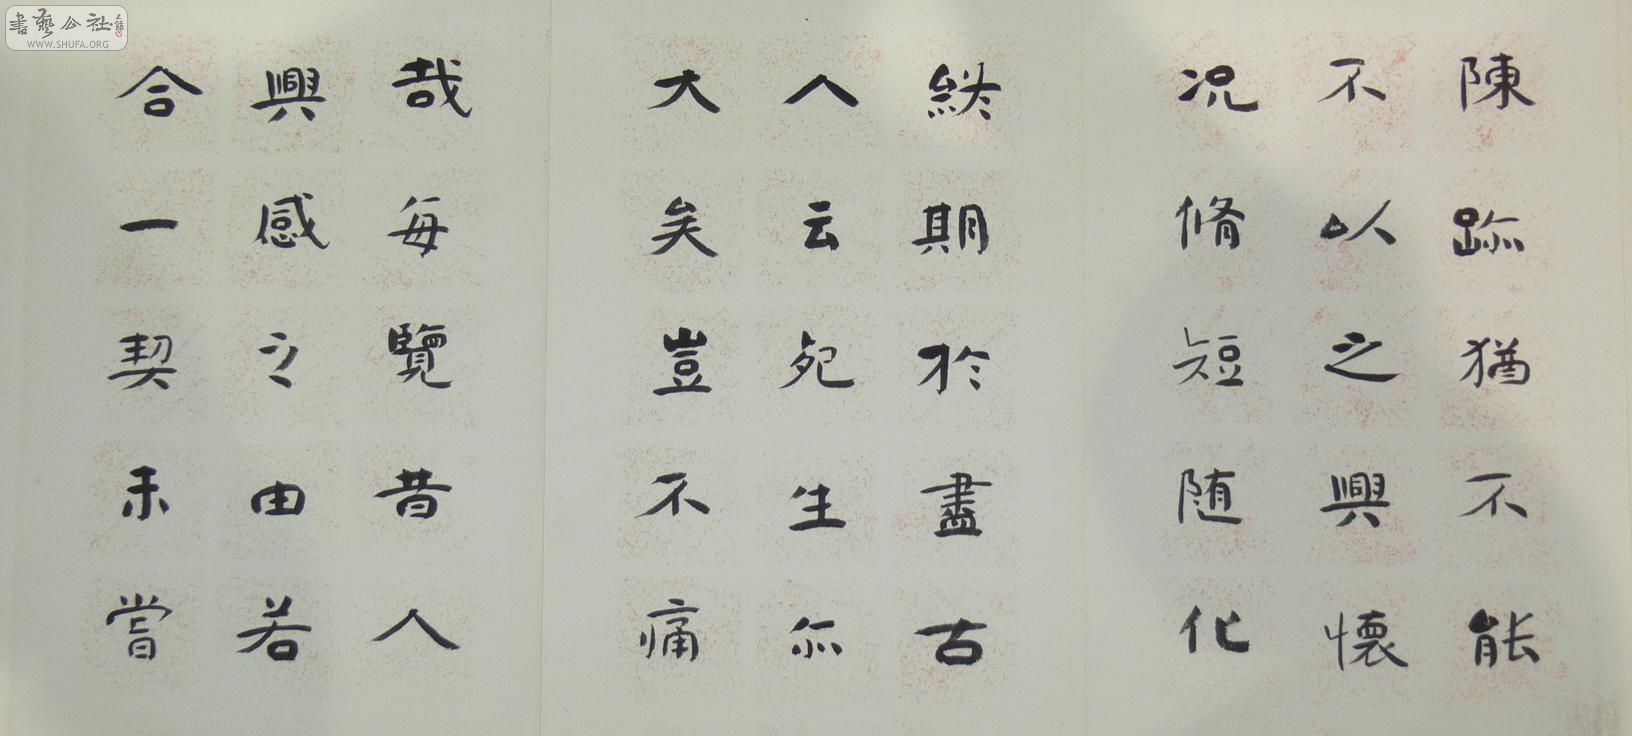 陳跡猶不能
不以之興懷
况脩短随化
終期於盡古
人云死生亦
大矣豈不痛
哉每覽昔人
興感之由若
合一契未嘗
書藝公社
WWW.SHUFA.ORG